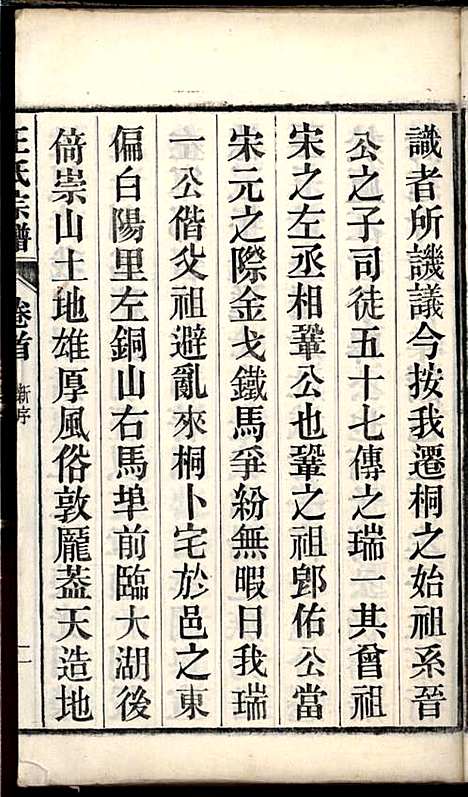 識者所譏議今按我遷桐之始祖系晉
公之子司徒五十七傳之瑞一其曾祖
宋之左丞相鞏公也鞏之祖郎佑公當
宋元之際金戈鐵馬爭紛無暇日我瑞
一公偕父祖避亂來桐卜宅於邑之東
偏白陽里左銅山右馬埠前臨大湖後
倚崇山土地雄厚風俗敦龐葢天造地
王氏宗譜 卷首 新序 二